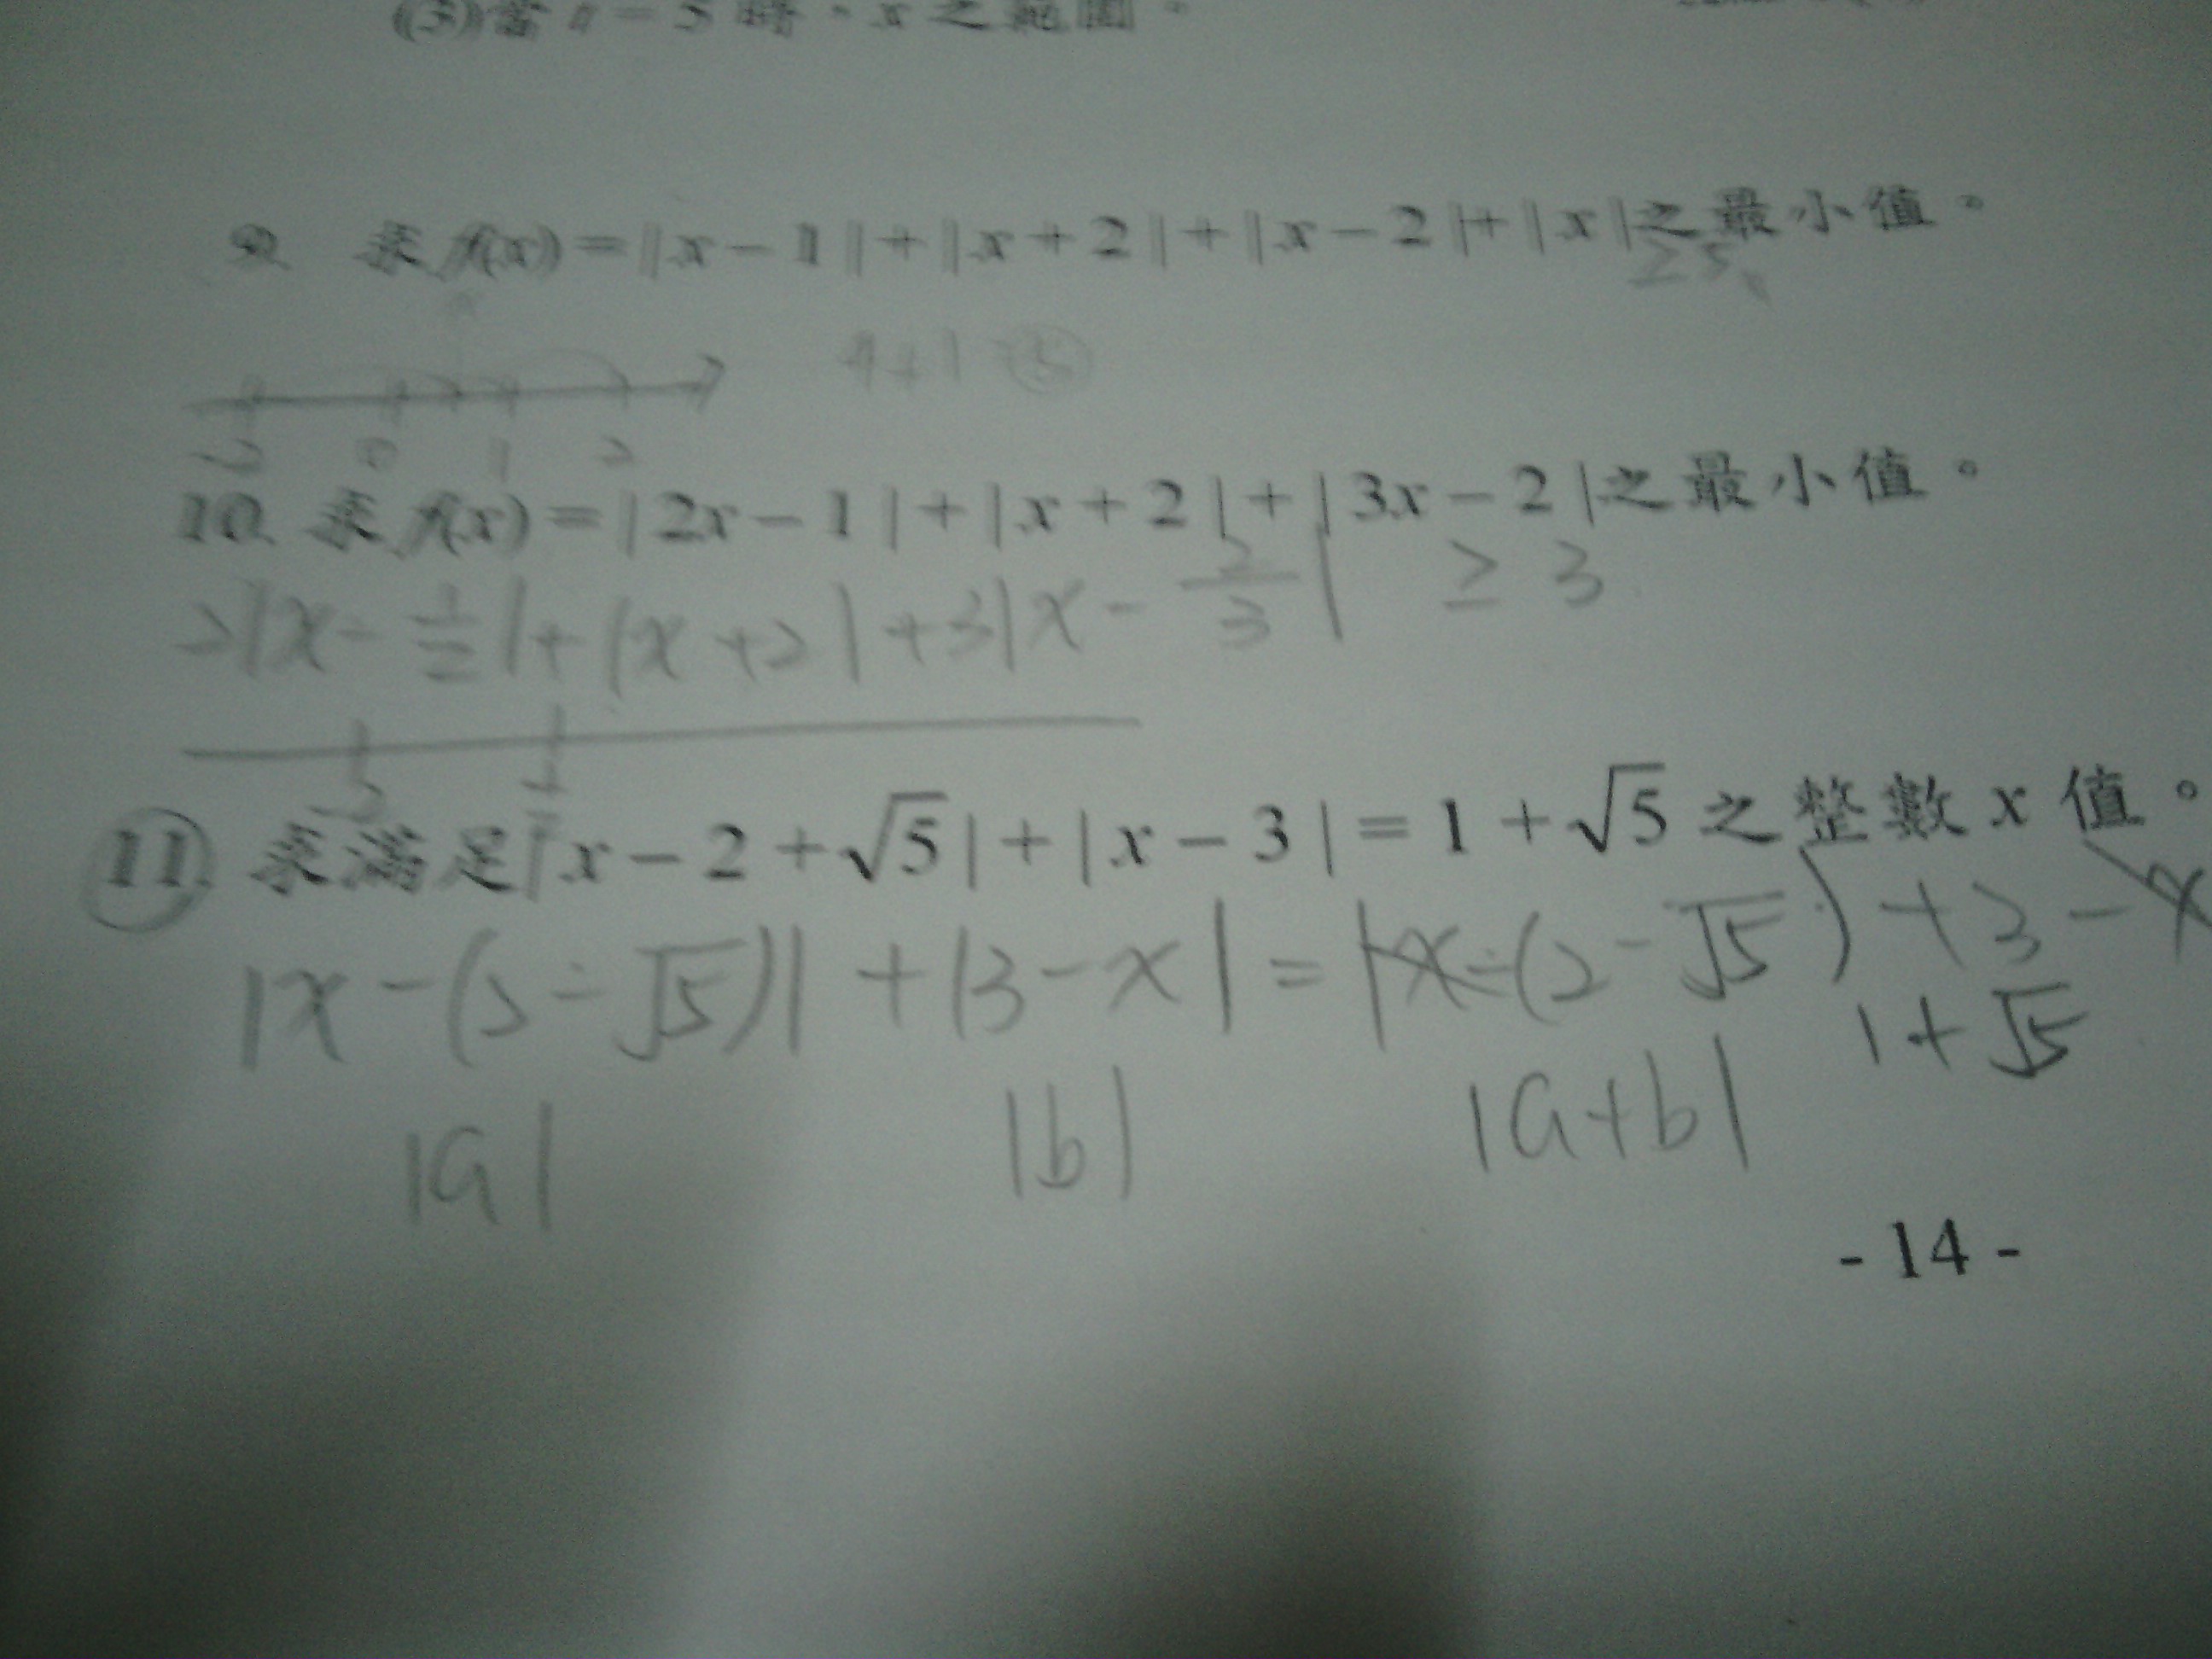 (3)當 t = 5 時，x 之範圍。
9. 求 f(x) = | x − 1 | + | x + 2 | + | x − 2 | + | x | 之最小值。
≥ 5
4+1 = 5
-2 0 1 2
10. 求 f(x) = | 2x − 1 | + | x + 2 | + | 3x − 2 | 之最小值。
2|x - 1/2| + |x+2| + 3|x - 2/3| ≥ 3
-2 1/2
11. 求滿足 | x − 2 + √5 | + | x − 3 | = 1 + √5 之整數 x 值。
|x - (2 - √5)| + |3 - x| = |x - (2 - √5) + 3 - x|
1 + √5
|a| |b| |a+b|
- 14 -